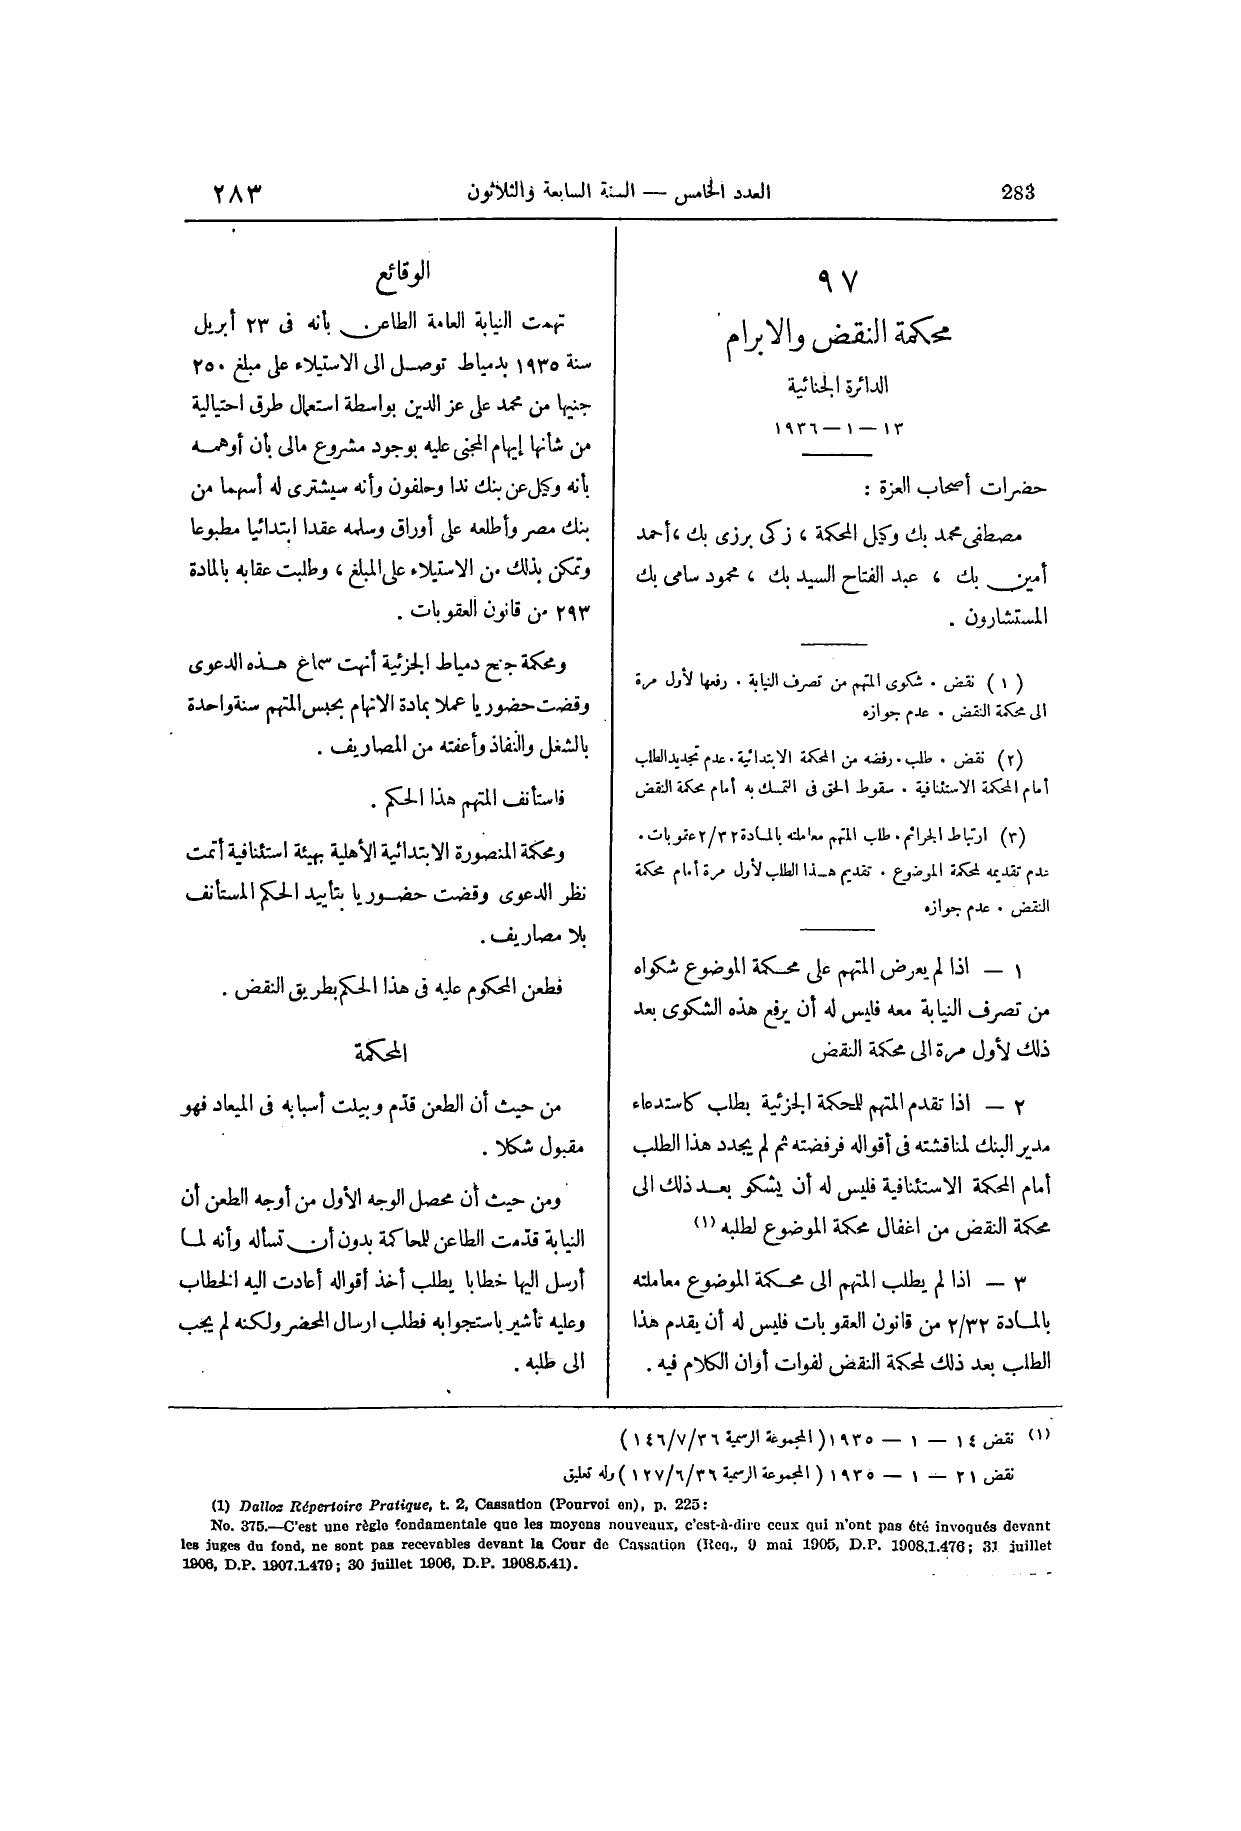 283
العدد الخامس — السنة السابعة والثلاثون
٢٨٣
٩٧
محكمة النقض والابرام
الدائرة الجنائية
١٣ — ١ — ١٩٣٦
حضرات أصحاب العزة :
مصطفى محمد بك وكيل المحكمة ، زكى برزى بك ، أحمد
أمين بك ، عبد الفتاح السيد بك ، محمود سامى بك
المستشارون .
(١) نقض . شكوى المتهم من تصرف النيابة . رفعها لأول مرة
الى محكمة النقض . عدم جوازه
(٢) نقض . طلب . رفضه من المحكمة الابتدائية . عدم تجديد الطلب
أمام المحكمة الاستئنافية . سقوط الحق فى التمسك به أمام محكمة النقض
(٣) ارتباط الجرائم . طلب المتهم معاملته بالمادة ٢/٣٢ عقوبات .
عدم تقديمه لمحكمة الموضوع . تقديم هذا الطلب لأول مرة أمام محكمة
النقض . عدم جوازه
١ — اذا لم يعرض المتهم على محكمة الموضوع شكواه
من تصرف النيابة معه فليس له أن يرفع هذه الشكوى بعد
ذلك لأول مرة الى محكمة النقض
٢ — اذا تقدم المتهم للمحكمة الجزئية بطلب كاستدعاء
مدير البنك لمناقشته فى أقواله فرفضته ثم لم يجدد هذا الطلب
أمام المحكمة الاستئنافية فليس له أن يشكو بعد ذلك الى
محكمة النقض من اغفال محكمة الموضوع لطلبه (١)
٣ — اذا لم يطلب المتهم الى محكمة الموضوع معاملته
بالمادة ٢/٣٢ من قانون العقوبات فليس له أن يقدم هذا
الطلب بعد ذلك لمحكمة النقض لفوات أوان الكلام فيه .
الوقائع
تهمت النيابة العامة الطاعن بأنه فى ٢٣ أبريل
سنة ١٩٣٥ بدمياط توصل الى الاستيلاء على مبلغ ٢٥٠
جنيها من محمد على عز الدين بواسطة استعمال طرق احتيالية
من شأنها إيهام المجنى عليه بوجود مشروع مالى بأن أوهمه
بأنه وكيل عن بنك ندا وحلفون وأنه سيشترى له أسهما من
بنك مصر وأطلعه على أوراق وسلمه عقدا ابتدائيا مطبوعا
وتمكن بذلك من الاستيلاء على المبلغ ، وطلبت عقابه بالمادة
٢٩٣ من قانون العقوبات .
ومحكمة جنح دمياط الجزئية أنهت سماع هذه الدعوى
وقضت حضوريا عملا بمادة الاتهام بحبس المتهم سنة واحدة
بالشغل والنفاذ وأعفته من المصاريف .
فاستأنف المتهم هذا الحكم .
ومحكمة المنصورة الابتدائية الأهلية بهيئة استئنافية أتمت
نظر الدعوى وقضت حضوريا بتأييد الحكم المستأنف
بلا مصاريف .
فطعن المحكوم عليه فى هذا الحكم بطريق النقض .
المحكمة
من حيث أن الطعن قدّم وبينت أسبابه فى الميعاد فهو
مقبول شكلا .
ومن حيث أن محصل الوجه الأول من أوجه الطعن أن
النيابة قدّمت الطاعن للمحاكمة بدون أن تسأله وأنه لما
أرسل اليها خطابا يطلب أخذ أقواله أعادت اليه الخطاب
وعليه تأشير باستجوابه فطلب ارسال المحضر ولكنه لم يجب
الى طلبه .
(١) نقض ١٤ — ١ — ١٩٣٥ (المجموعة الرسمية ١٤٦/٧/٣٦)
نقض ٢١ — ١ — ١٩٣٥ (المجموعة الرسمية ١٢٧/٦/٣٦) وله تعليق
(1) Dalloz Répertoire Pratique, t. 2, Cassation (Pourvoi en), p. 225:
No. 375.—C'est une règle fondamentale que les moyens nouveaux, c'est-à-dire ceux qui n'ont pas été invoqués devant
les juges du fond, ne sont pas recevables devant la Cour de Cassation (Req., 9 mai 1905, D.P. 1908.1.476; 31 juillet
1906, D.P. 1907.1.479; 30 juillet 1906, D.P. 1908.5.41).